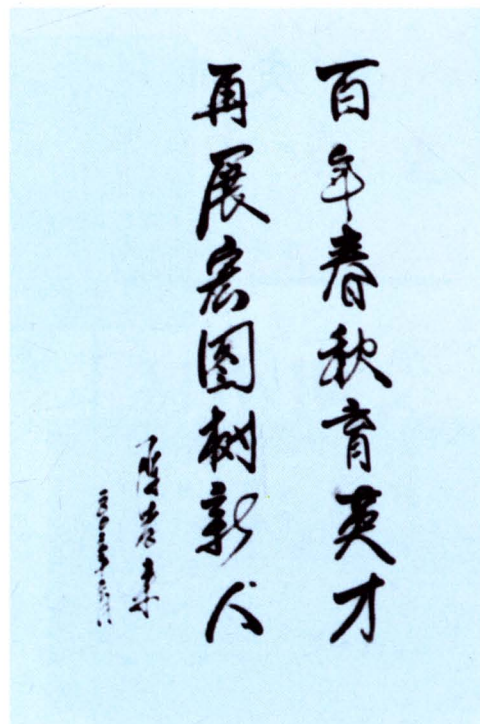 百年春秋育英才
再展宏图树新人